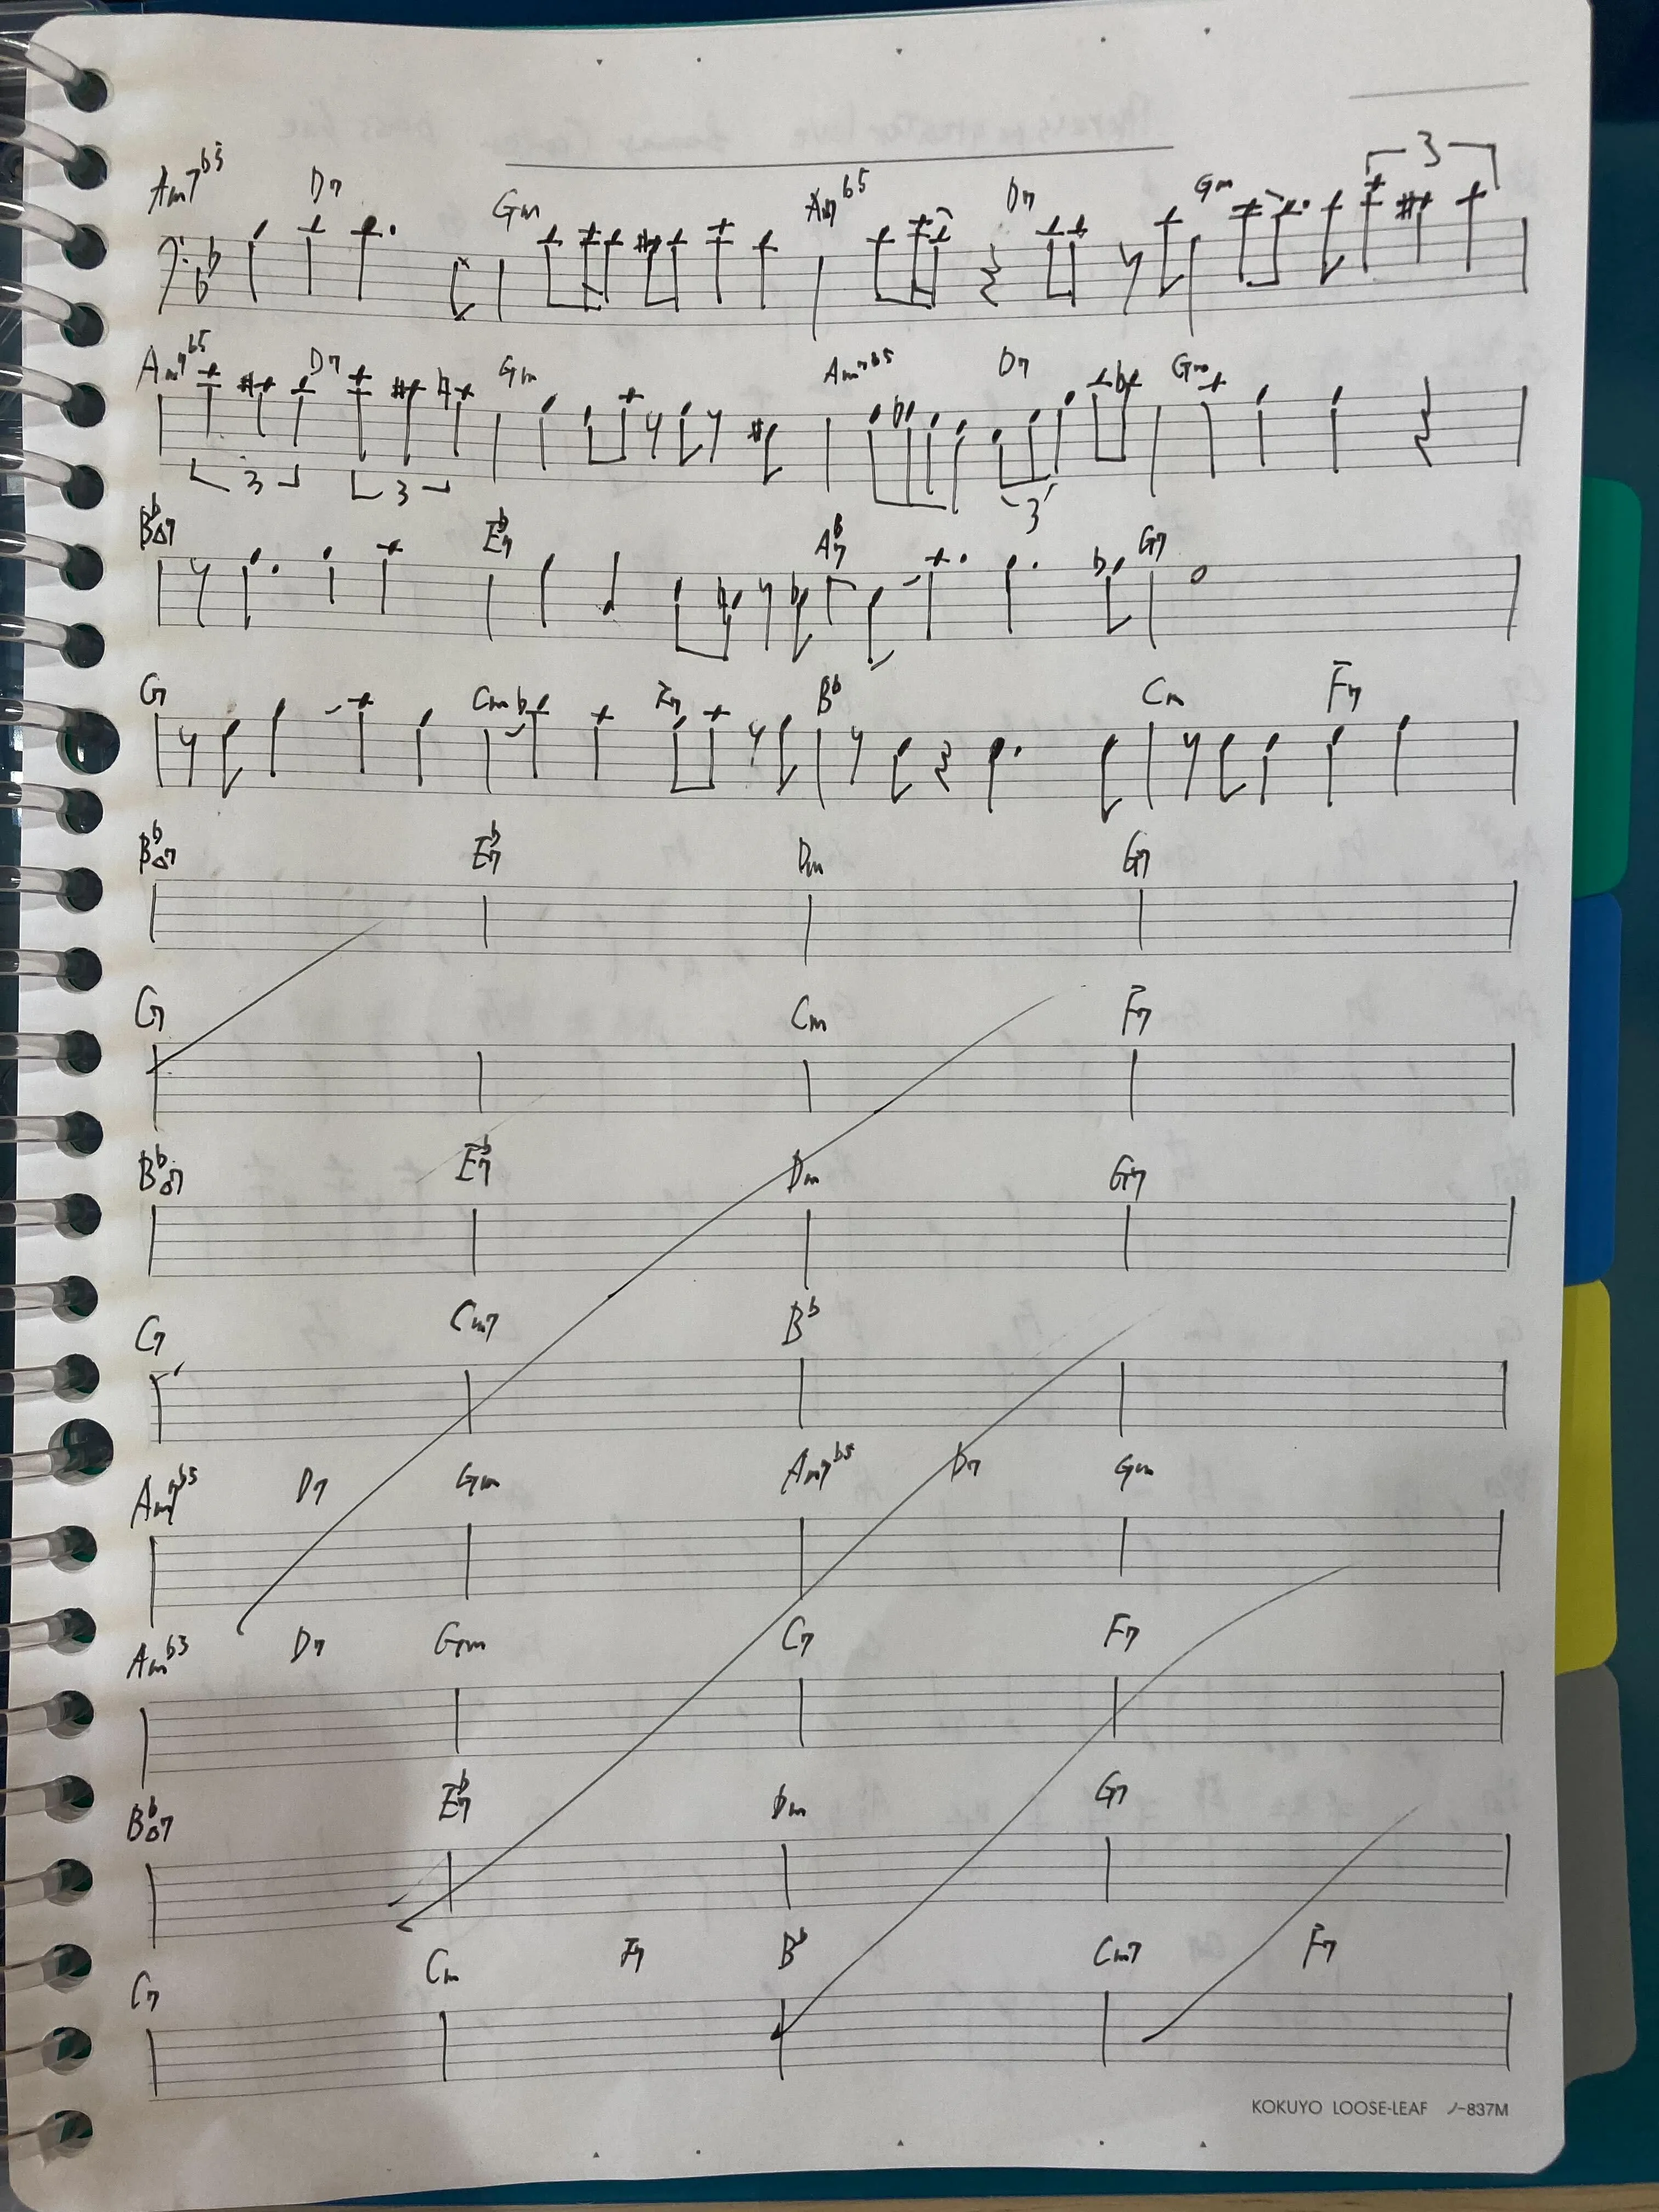 Am7b5 D7 Gm Am7b5 D7 Gm 3
Am7b5 D7 Gm Am7b5 D7 Gm
3 3 3
Bb△7 Eb7 Ab7 G7
G7 Cm F7 Bb Cm F7
Bb△7 Eb7 Dm G7
G7 Cm F7
Bb△7 Eb7 Dm G7
G7 Cm7 Bb
Am7b5 D7 Gm Am7b5 D7 Gm
Amb5 D7 Gm C7 F7
Bb△7 Eb7 Dm G7
C7 Cm F7 Bb Cm7 F7
KOKUYO LOOSE-LEAF ノ-837M